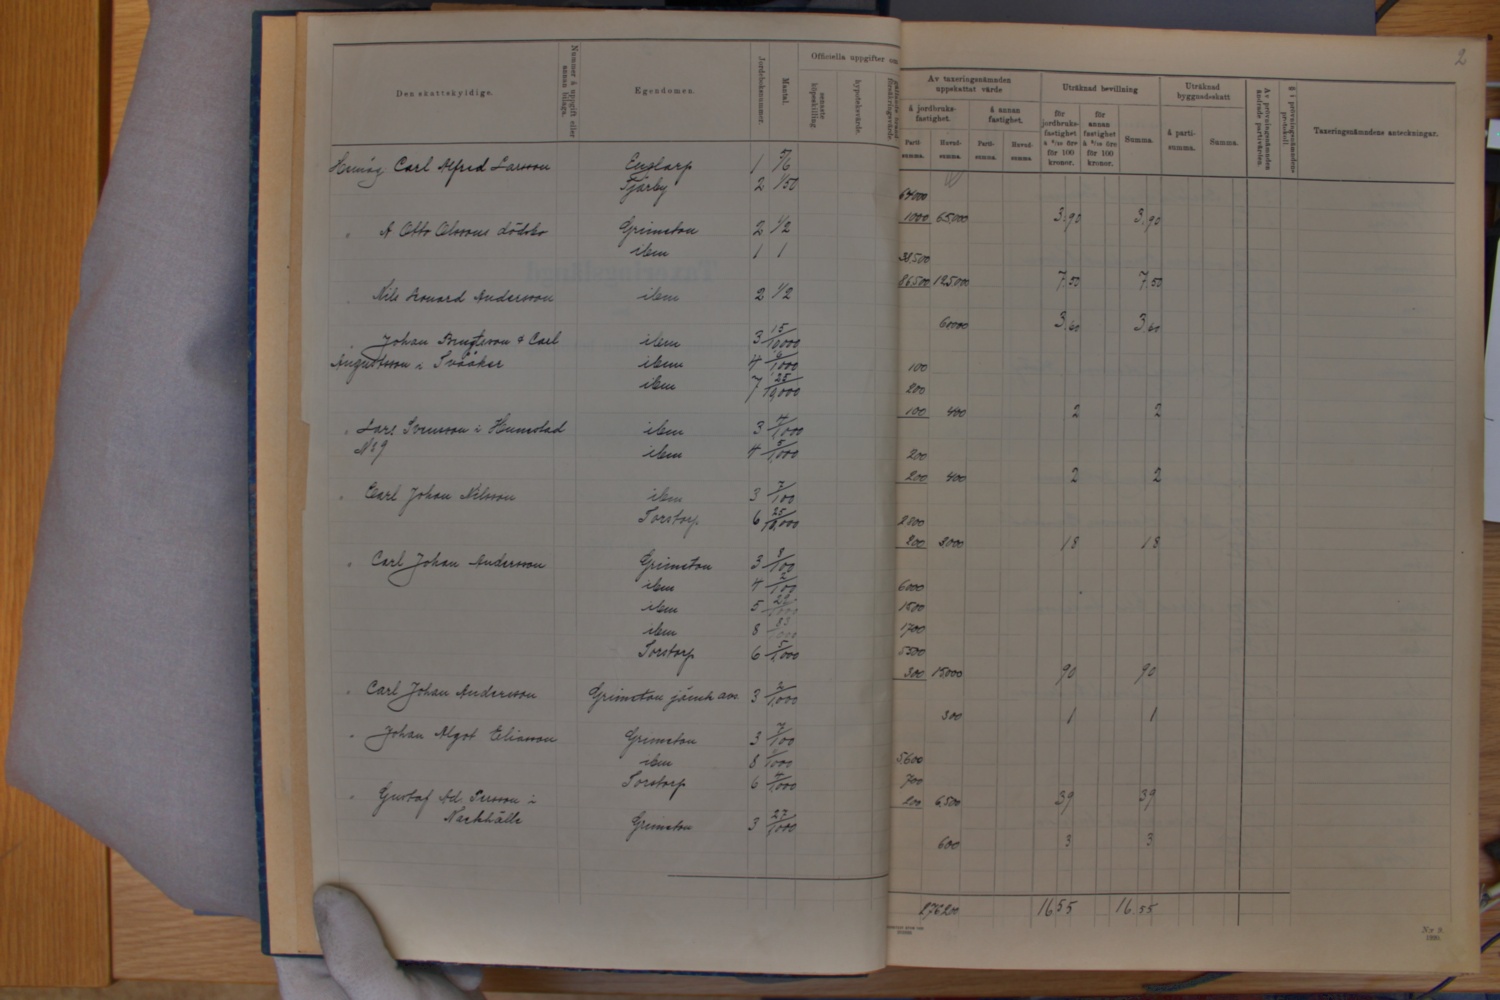 2
Den skattskyldige.
Nummer å uppgift eller annan bilaga.
Egendomen.
Jordeboksnummer.
Mantal.
Officiella uppgifter om
senaste köpeskilling.
hypoteksvärde.
Av taxeringsnämnden uppskattat värde
å jordbruks-fastighet.
å annan fastighet.
Parti-summa.
Huvud-summa.
Parti-summa.
Huvud-summa.
Uträknad bevillning
för jordbruks-fastighet
för 100 kroner.
för annan fastighet
för 100 kroner.
Summa.
Uträknad byggnadsskatt
å parti-summa.
Summa.
Av prövningsnämnden ändrade partivärden.
§ i prövningsnämndens protokoll.
Taxeringsnämndens anteckningar.
Carl Alfred Larsson 1
Tjärby 2 1/50
64000
1000 65000 3,90 3,90
A Otto Olssons dödsbo Grimeton 2 1/2
idem 1 1
38500
86500 125000 7,50 7,50
Nils Andersson idem 2 1/2
60000 3,60 3,60
Johan Bengtsson & Carl idem 3 15/10000
Augustsson i Svääker idem 4 /1000
100
idem 7 25/10,000
200
100 400 2 2
Lars Svensson i Hunestad idem 3 4/1000
No 9 idem 4 5/1000
200
200 400 2 2
Carl Johan Nilsson idem 3 7/100
Torstorp 6 25/10,000
2800
200 3000 18 18
Carl Johan Andersson Grimeton 3 8/100
idem 4 2/100
6000
idem 5
1500
idem 8
1700
Torstorp 6 5/1000
5500
300 15000 90 90
Carl Johan Andersson Grimeton 3 2/1000
300 1 1
Johan Algot Eliasson Grimeton 3 7/100
idem 8
5600
Torstorp 6 4/1000
700
200 6,500 39 39
Gustaf Ad. Persson i
Grimeton 3 27/1000
600 3 3
276200 16 55 16 55